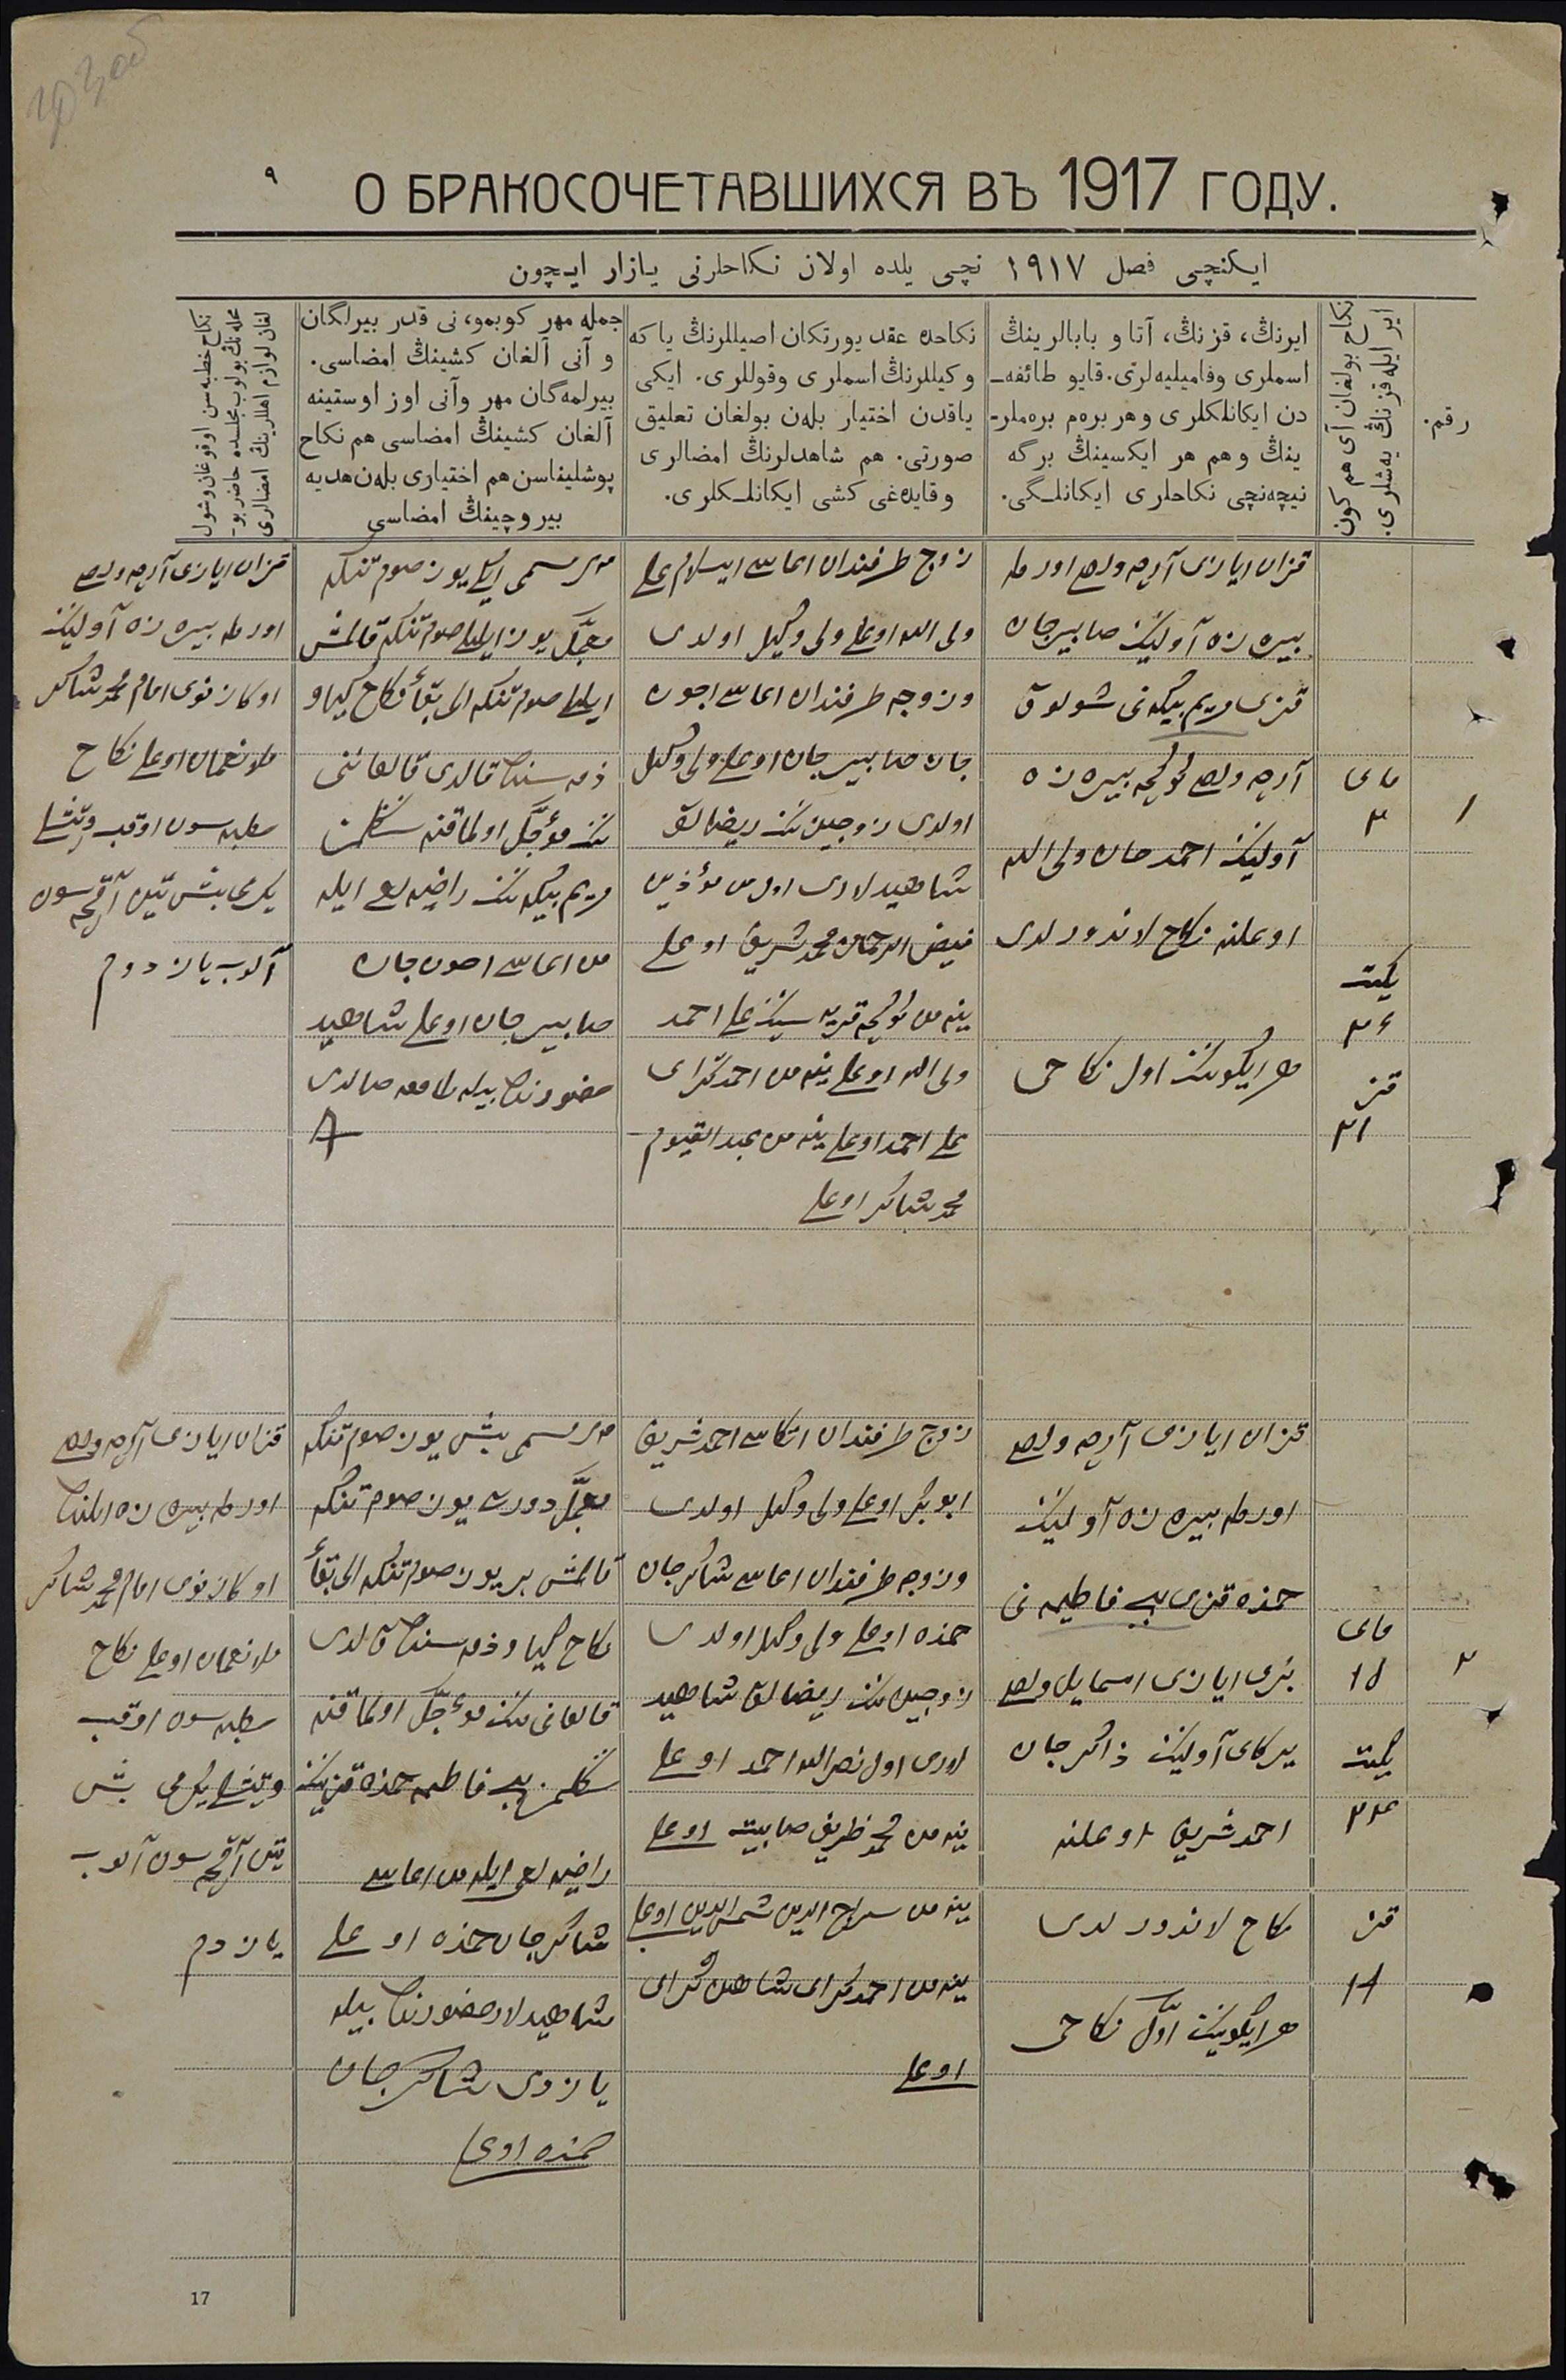 ٩
О БРАКОСОЧЕТАВШИХСЯ ВЪ 1917 ГОДУ.
ایکنچی فصل ١٩١٧ نچی یلده اولان نكاحلرنی یازار ایچون
رقم.
نکاح بولغان آی هم کون
ایر ایله قز نڭ یه‌شلری.
ایرنڭ، قزنڭ، آتا و بابالرینڭ
اسملری وفامیلیه‌لرٸ. قایو طائفه‌ـ
دن ایكانلكلری و هر بره‌م بره‌ملرـ
ینڭ و هم هر ایكسینڭ برگه
نیچه‌نچی نكاحلری ایكانلـگی.
نكاحده عقد یورتكان اصیللرنڭ یا كه
وكیللرنڭ اسملری وقوللری. ایكی
یاقدن اختیار بله‌ن بولغان تعلیق
صورتی. هم شاهدلرنڭ امضالری
وقایده‌غی كشی ایكانلـكلری.
جمله مهر كوبمو، نی قدر بیرلگان
و آنی آلغان كشینڭ امضاسی.
بیرلمه‌گان مهر وآنی اوز اوستینه
آلغان كشینڭ امضاسی هم نكاح
پوشلیناسن هم اختیاری بله‌ن هدیه
بیروچینڭ امضاسی
نكاح خطبه‌سن اوقوغان وشول
محله‌نڭ بولوب مجلسده حاضر بوـ
لغان لوازم اهللرینڭ امضالری
١
مای
٣
یگیت
٢٤
قز
٢١
قزان ایازی آرچه ولصی اورطه
بیره زه آولینڭ صابیرجان
قزی مریم بیكه نی شولوق
آرچه ولصی بیره زه
آولینڭ احمدجان ولی الله
اوغلینه نكاح لاندورلدی
هر ایكوینڭ اول نكاحی
زوج طرفندان اغاسی اسلام علی
ولی الله اوغلی ولی وكیل اولدی
وزوجه طرفندان اغاسی
جان صابیرجان اوغلی ولی وكیل
اولدی زوجین ننڭ ریضالق
شاهیدلاری اول من مؤذین
فیض الرحمان محمدشریف اوغلی
ینه من قریه سینڭ علی احمد
ولی الله اوغلی ینه من احمدگرای
علی احمد اوغلی ینه من عبدالقیوم
محمدشاكر اوغلی
مهر مسمی ایكی یوز صوم تنكه
معجّل یوز ایللی صوم تنكه قالمش
ایللی صوم تنكه الی بقأ نكاح كیاو
ذمه سنده قالدی قالغاننی
ننڭ مؤجّل اولماقنه
مریم بیكه ننڭ راضیه لغی ایله
من اغاسی جان
صابیرجان اوغلی شاهید
حضورنده بیله طامغه صالدی
قزان ایازی آرچه ولصی
اورطه بیره زه آولینڭ
اوكازنوی امام محمدشاكر
ملا نعمان اوغلی نكاح
خطبه سون اوقب
یگرمی بیش تین آقچه سون
آلوب یازدوم
٢
مای
١٥
یگیت
٢٣
قز
١٩
قزان ایازی آرچه ولصی
اورطه بیره زه آولینڭ
حمزه قزی بی بی فاطیمه نی
ایازی اسمایل ولصی
آولینڭ ذاكرجان
احمدشریف اوغلینه
نكاح لاندورلدی
هر ایكوینڭ اوّل نكاحی
زوج طرفندان اتكاسی احمدشریف
ابوبكر اوغلی ولی وكیل اولدی
وزوجه طرفندان اغاسی شاكرجان
حمزه اوغلی ولی وكیل اولدی
زوجین ننڭ ریضالق شاهید
لاری اول نصرالله احمد اوغلی
ینه من محمدظریف صابیت اوغلی
ینه من سراج الدین شمس الدین اوغلی
ینه من احمدگرای شاهین گرای
اوغلی
مهر مسمی بیش یوز صوم تنكه
معجّل دورت یوز صوم تنكه
قالمش بر یوز صوم تنكه الی بقأ
نكاح كیاو ذمه سنده قالدی
قالغانی ننڭ مؤجّل اولماقنه
بی بی فاطمه حمزه قزینڭ
راضیه لغی ایله من اغاسی
شاكرجان حمزه اوغلی
شاهیدلار حضورنده بیله
یازدی شاكرجان
حمزه اوغلی
قزان ایازی آرچه ولصی
اورطه بیره زه
اوكازنوی امام محمدشاكر
ملا نعمان اوغلی نكاح
خطبه سون اوقب
یگرمی بیش
تین آقچه سون آلوب
یازدم
17